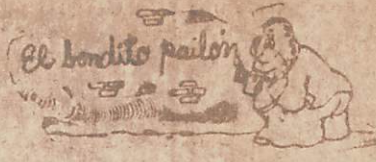 El bondito pailón